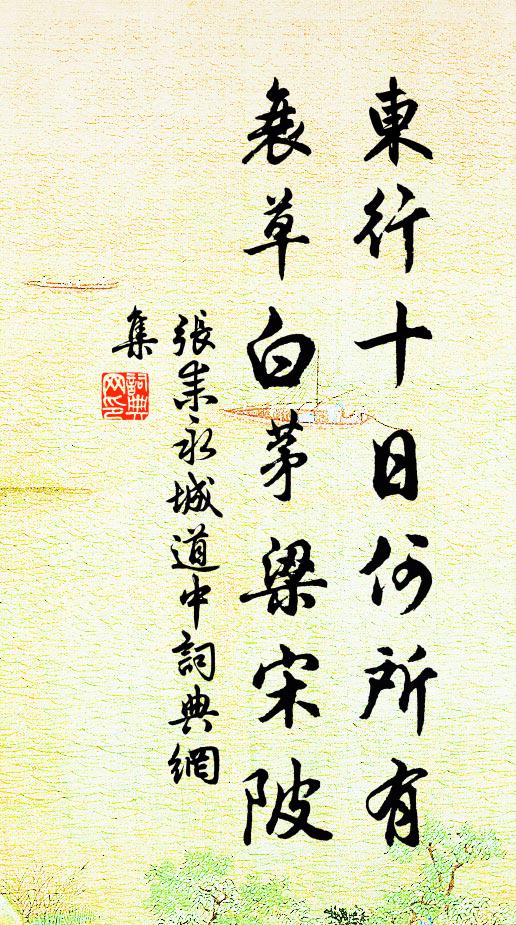 東行十日何所有
衰草白茅梁宋陂
張耒永城道中詞典網
集
詞典
网印